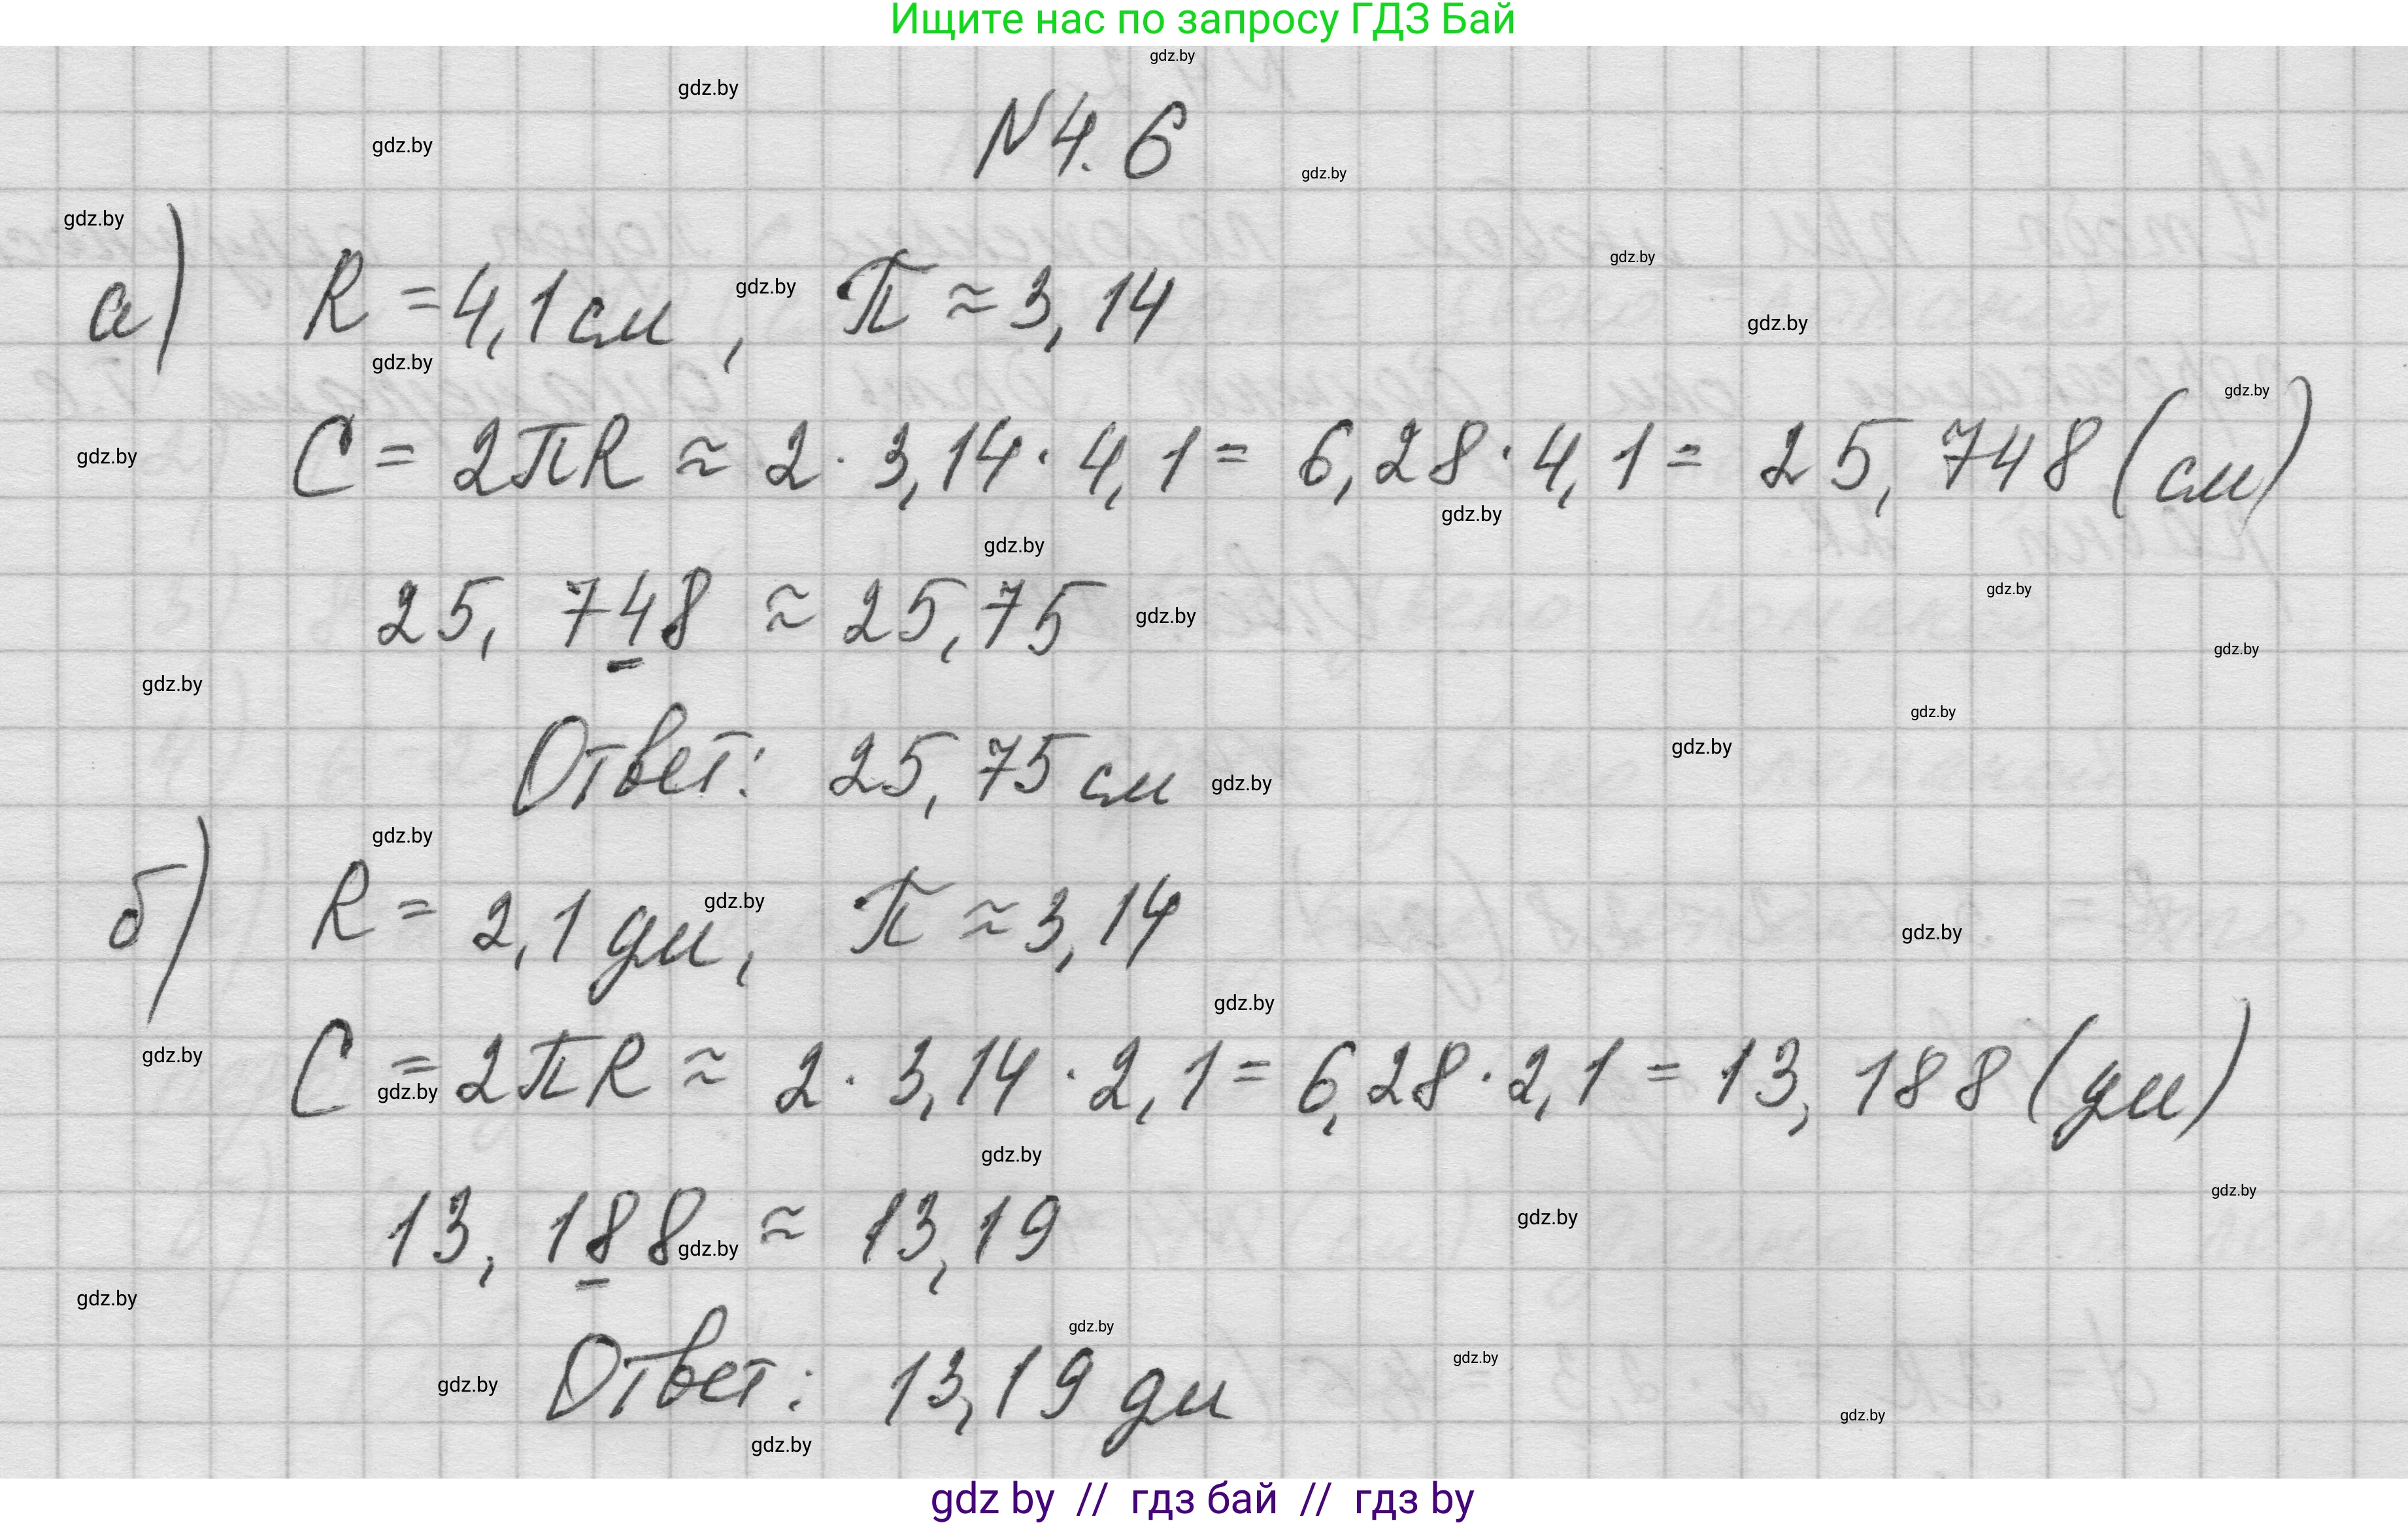 Ищите нас по запросу ГДЗ Бай
gdz.by
gdz.by
N 4.6
gdz.by
gdz.by
gdz.by
gdz.by
а) R = 4,1 см, π ≈ 3,14
gdz.by
gdz.by
gdz.by
gdz.by
C = 2πR ≈ 2 · 3,14 · 4,1 = 6,28 · 4,1 = 25,748 (см)
gdz.by
gdz.by
gdz.by
gdz.by
25,748 ≈ 25,75
gdz.by
gdz.by
gdz.by
gdz.by
gdz.by
Ответ: 25,75 см
gdz.by
gdz.by
gdz.by
б) R = 2,1 дм, π ≈ 3,14
gdz.by
gdz.by
gdz.by
C = 2πR ≈ 2 · 3,14 · 2,1 = 6,28 · 2,1 = 13,188 (дм)
gdz.by
gdz.by
gdz.by
13,188 ≈ 13,19
gdz.by
gdz.by
gdz.by
gdz.by
gdz.by
Ответ: 13,19 дм
gdz.by
gdz.by
gdz.by
gdz.by
gdz by // гдз бай // гдз by